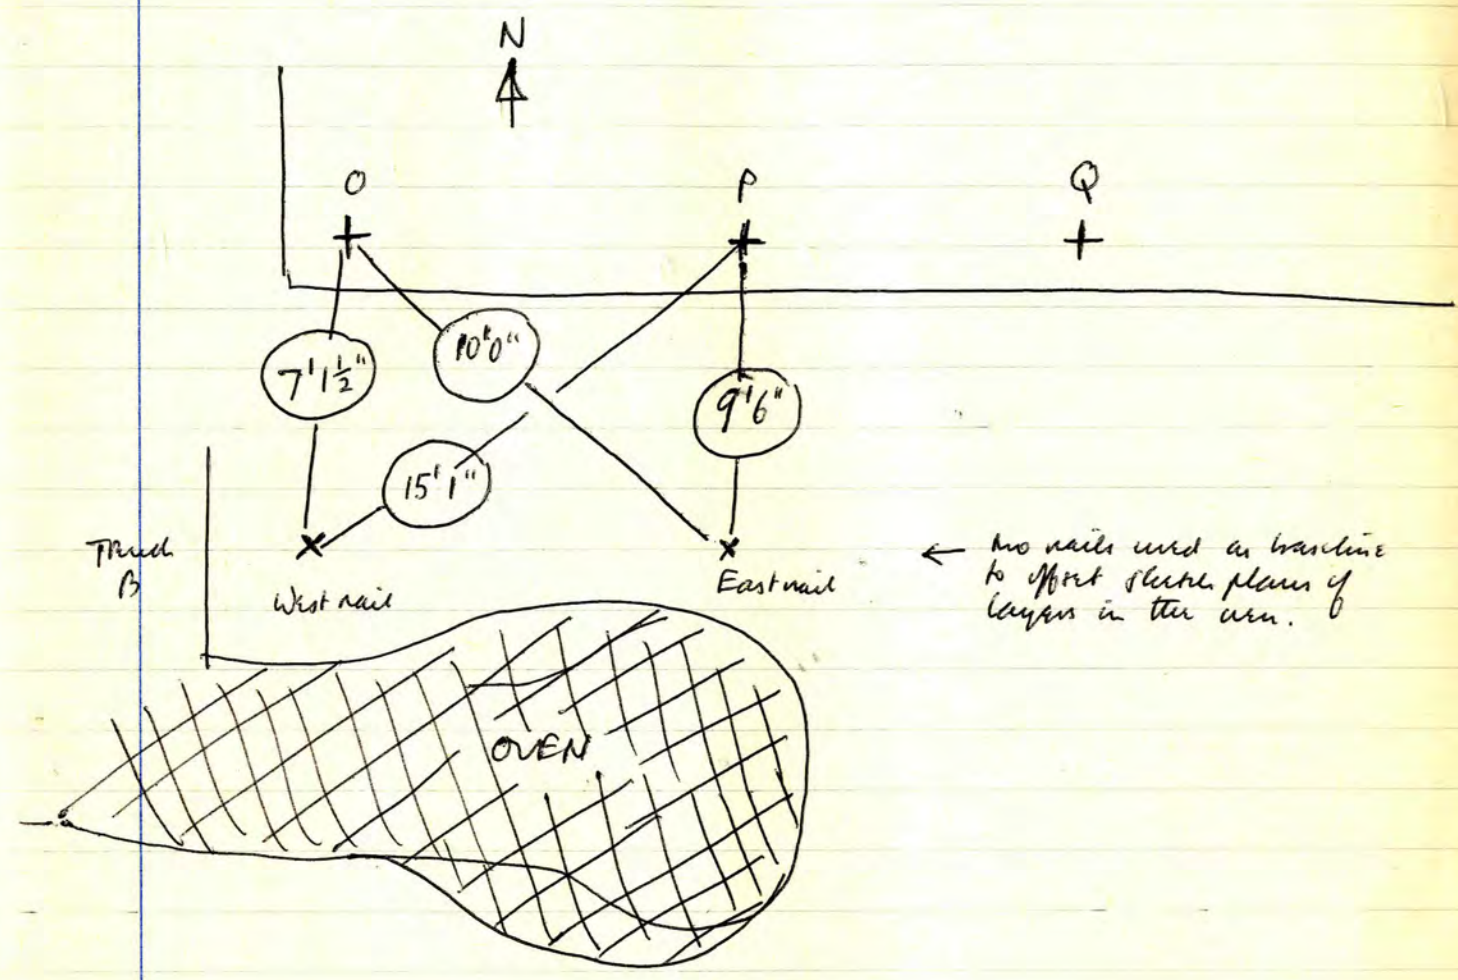 N
O
P
Q
7'1½"
10'0"
9'6"
15'1"
Trench
B
West nail
East nail
← Two nails used as baseline
to offset sketch plans of
layers in the oven.
OVEN